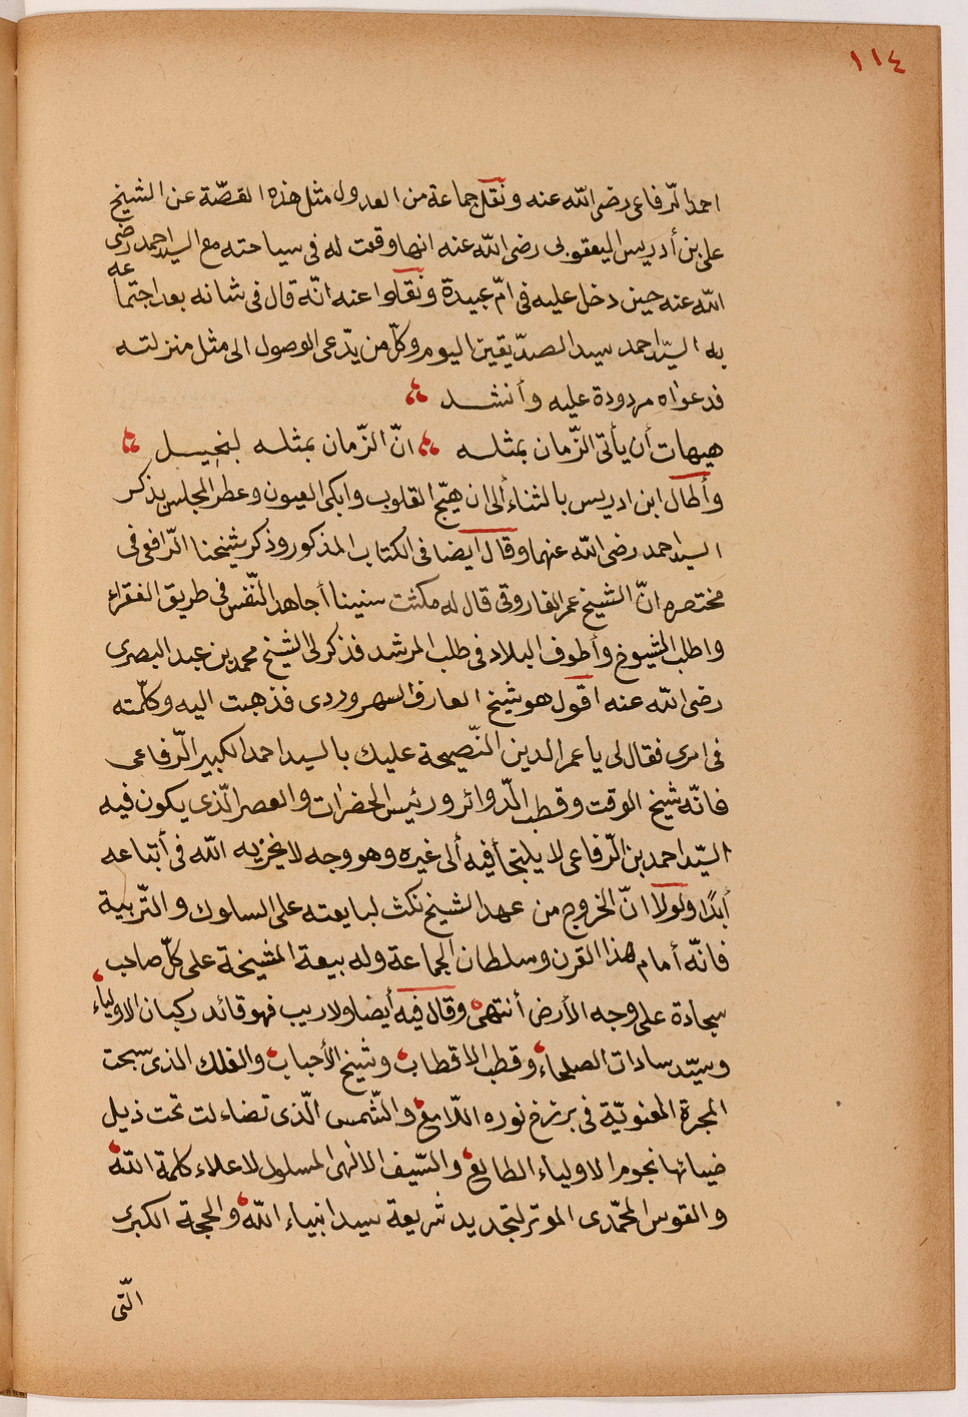 ١١٤
احمد الرّفاعى رضى الله عنه ونقل جماعة من العدول مثل هذه القصّة عن الشيخ
على بن أدريس اليعقوبى رضى الله عنه انها وقعت له فى سياحته مع السيد احمد رضى
الله عنه حين دخل عليه فى امّ عبيدة ونقلوا عنه انّه قال فى شانه بعد اجتماعه
به السيّد احمد سيد الصدّيقين اليوم وكلّ من يدّعى الوصول الى مثل منزلته
فدعواه مردودة عليه وأنشد
هيهات أن يأتى الزّمان بمثله انّ الزّمان بمثله لبخيل
وأطال ابن ادريس بالثناء ألى ان هيّج القلوب وابكى العيون وعطر المجلس بذكر
السيد احمد رضى الله عنهما وقال ايضا فى الكتاب المذكور وذكر شيخنا الرّافعى فى
مختصره انّ الشيخ عمر الفاروقى قال له مكثت سنينا أجاهد النّفس فى طريق الفقراء
واطلب الشيوخ وأطوف البلاد فى طلب المرشد فذكر لى الشيخ محمد بن عبد البصرى
رضى الله عنه اقول هو شيخ العارف السهروردى فذهبت اليه وكلّمته
فى امرى فقال لى يا عمر الدين النّصيحة عليك بالسيد احمد الكبير الرّفاعى
فانّه شيخ الوقت وقطب الدّوائر ورئيس الحضرات والعصر الّذى يكون فيه
السيّد احمد بن الرّفاعى لا يلتجأ فيه ألى غيره وهو وجه لا يخزيه الله فى أتباعه
أبدًا ولولا انّ الخروج من عهد الشيخ نكث لبايعته على السلوك والتّربية
فانّه أمام هذا القرن وسلطان الجماعة وله بيعة المشيخة على كلّ صاحب
سجادة على وجه الأرض أنتهى وقال فيه أيضا ولا ريب فهو قائد ركبان الاولياء
وسيّد سادات الصلحاء وقطب الاقطاب وشيخ الأحباب والفلك الذى سبحت
المجرة المعنويّة فى برزخ نوره اللّامع والشّمس الّذى تضاءلت تحت ذيل
ضيائها نجوم الاولياء الطالع والسّيف الالهى المسلول لاعلاء كلمة الله
والقوس المحمّدى الموتر لتجديد شريعة سيد انبياء الله والحجة الكبرى
الّتى